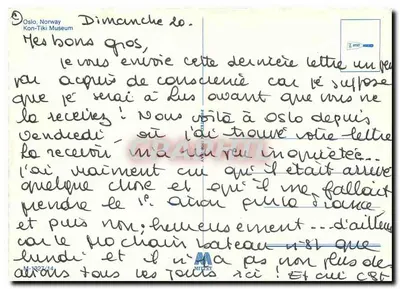 Dimanche 20.
Oslo, Norway
Kon-Tiki Museum
Mes bons gros,
je vous envoie cette dernière lettre un peu
par acquis de conscience car je suppose
que je serai à avant que vous ne
la receviez ! Nous voilà à Oslo depuis
vendredi où j'ai trouvé votre lettre
La recevoir m'a un peu inquiétée...
J'ai vraiment cru qu'il était arrivé
quelque chose et qu'il me fallait
prendre le 1er avion pour la France
et puis non, heureusement... d'ailleurs
car le prochain bateau n'est que
lundi et il n'y a pas non plus de
avions tous les jours ici ! Et qui est